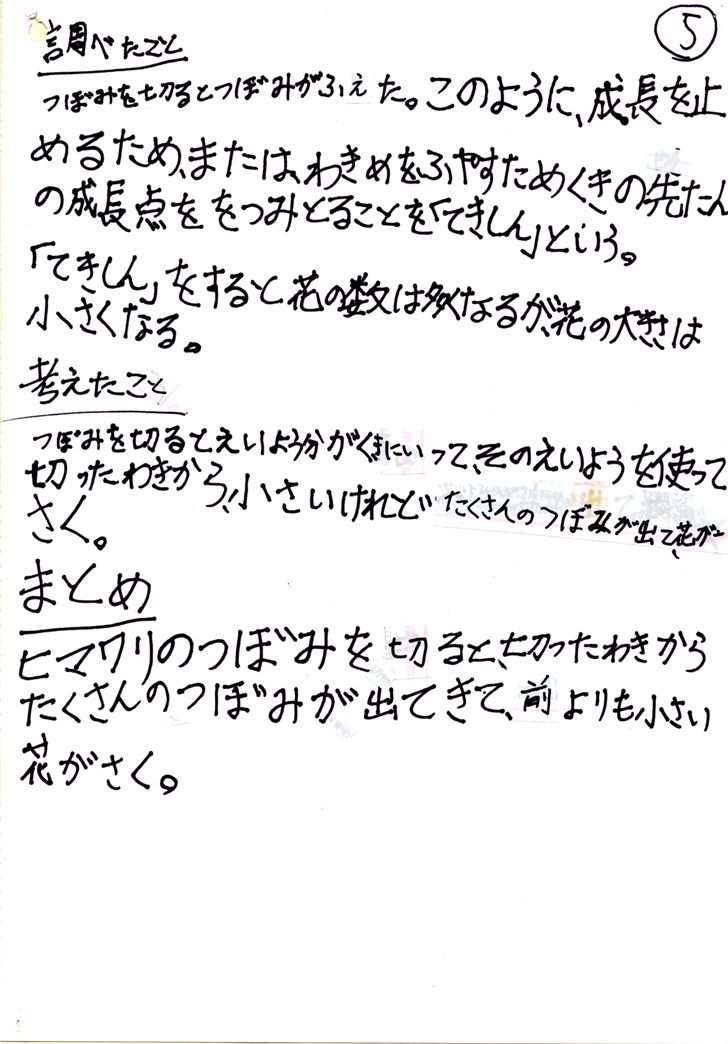 ⑤
調べたこと
つぼみを切るとつぼみがふえた。このように、成長を止
めるため、または、わきめをふやすためくきの先たん
の成長点ををつみとることを「てきしん」という。
「てきしん」をすると花の数は多くなるが、花の大きさは
小さくなる。
考えたこと
つぼみを切るとえいようがくきにいって、そのえいようを使って
切ったわきから、小さいけれどたくさんのつぼみが出て、花が
さく。
まとめ
ヒマワリのつぼみを切ると、切ったわきから
たくさんのつぼみが出てきて、前よりも小さい
花がさく。